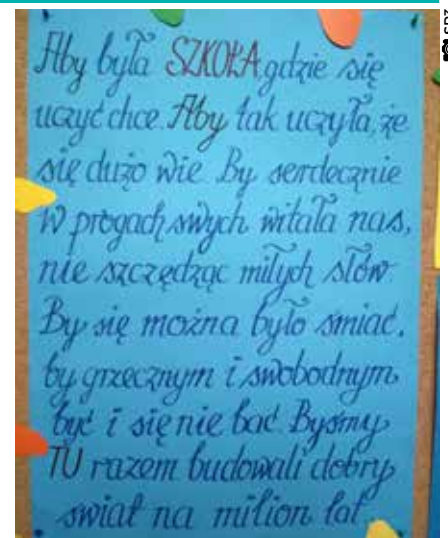 Aby była SZKOŁA, gdzie się
uczyć chce. Aby tak uczyła, że
się dużo wie. By serdecznie
w progach swych witała nas,
nie szczędząc miłych słów.
By się można było śmiać,
by grzecznym i swobodnym
być i się nie bać. Byśmy
TU razem budowali dobry
świat na milion lat.